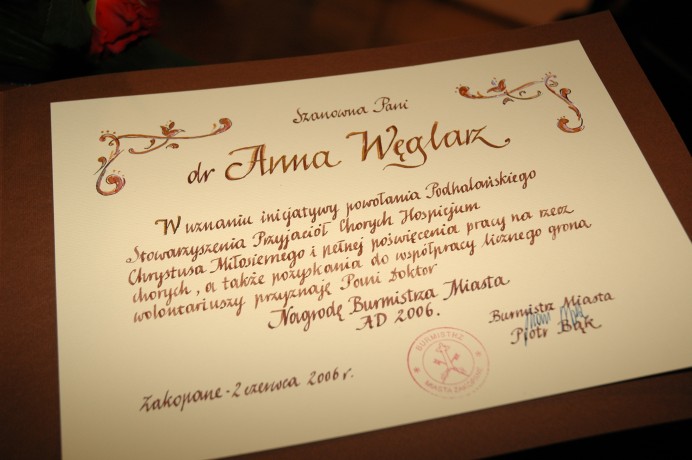 Szanowna Pani
dr Anna Węglarz
W uznaniu inicjatywy powołania Podhalańskiego
Stowarzyszenia Przyjaciół Chorych Hospicjum
Chrystusa Miłosiernego i pełnej poświęcenia pracy na rzecz
chorych, a także pozyskania do współpracy licznego grona
wolontariuszy przyznaję Pani Doktor
Nagrodę Burmistrza Miasta
AD 2006.
Burmistrz Miasta
Piotr Bąk
BURMISTRZ
MIASTA ZAKOPANE
Zakopane - 2 czerwca 2006 r.